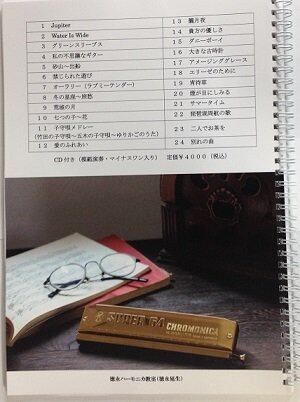 1 Jupiter
2 Water Is Wide
3 グリーンスリーブス
4 私の不思議なギター
5 砂山~出船
6 禁じられた遊び
7 オーラリー（ラブミーテンダー）
8 冬の星座~旅愁
9 荒城の月
10 七つの子~花
11 子守唄メドレー
（竹田の子守唄~五木の子守唄~ゆりかごのうた）
12 愛のふれあい
13 朧月夜
14 貴方の優しさ
15 ダニーボーイ
16 大きな古時計
17 アメージンググレース
18 エリーゼのために
19 宵待草
20 煙が目にしみる
21 サマータイム
22 琵琶湖周航の歌
23 二人でお茶を
24 別れの曲
CD付き（模範演奏・マイナスワン入り） 定価￥4000（税込）
SUPER 64 CHROMONICA
徳永ハーモニカ教室（徳永延生）